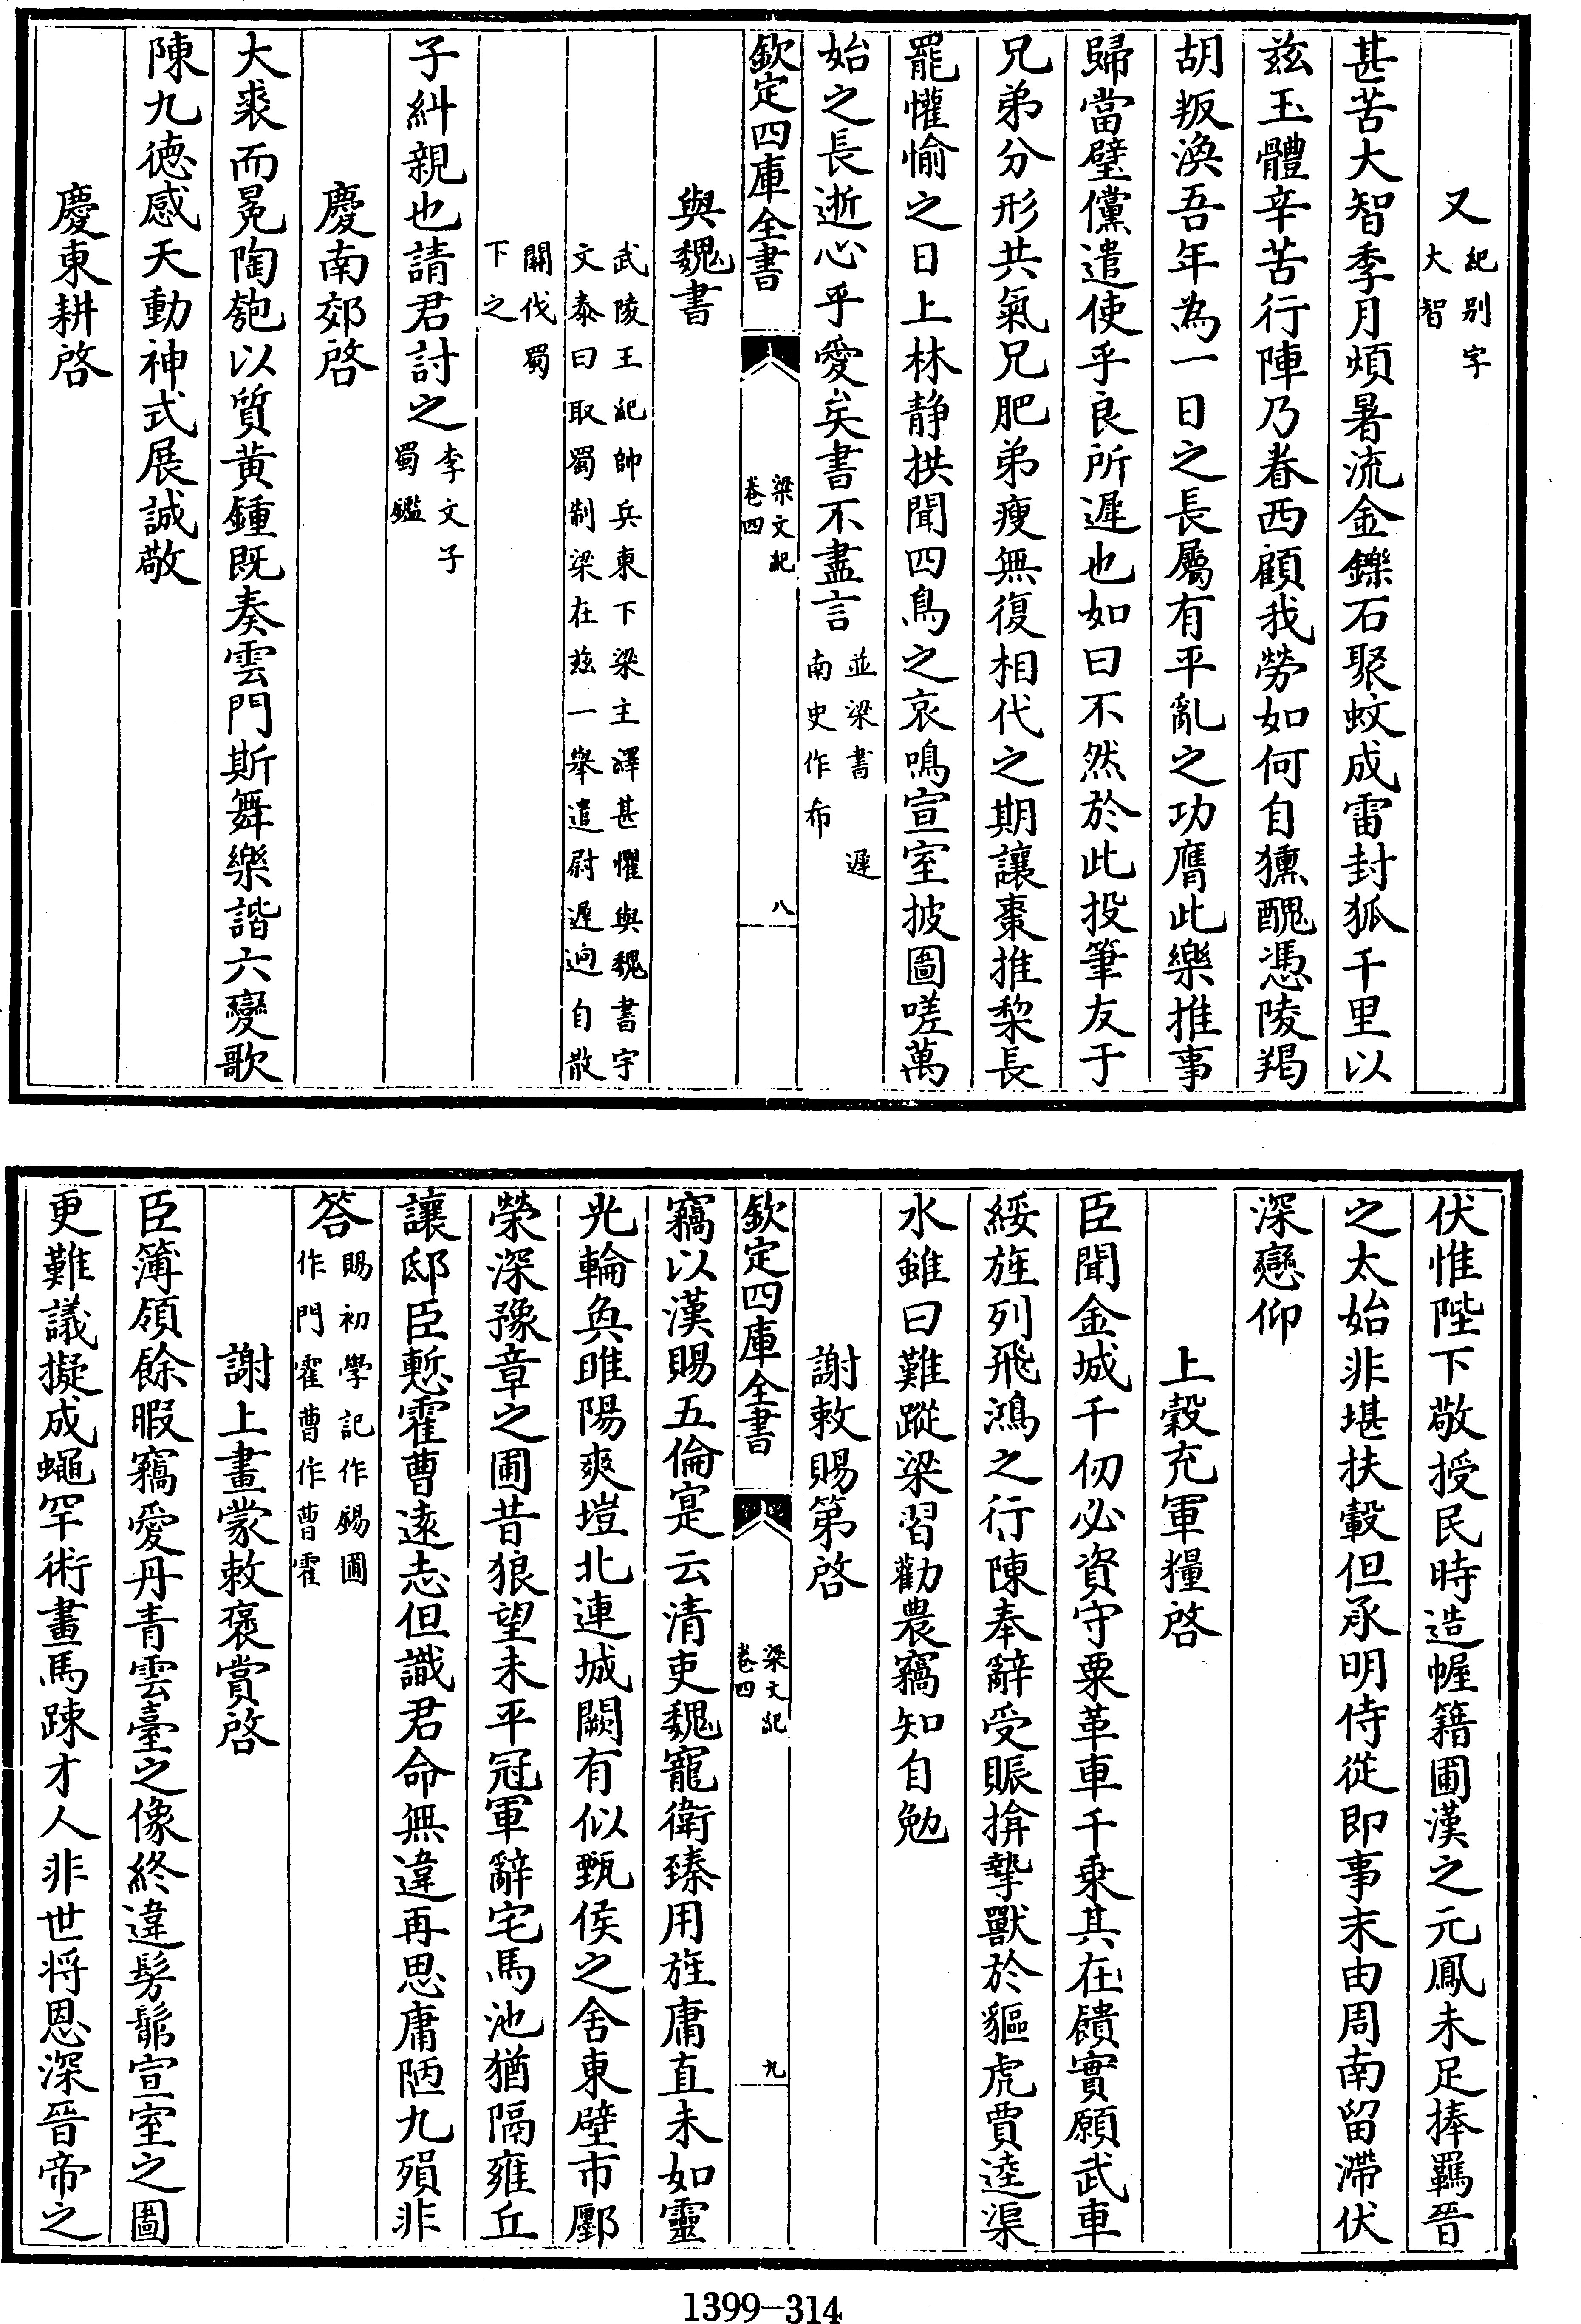 又紀别字大智
甚苦大智季月煩暑流金鑠石聚蚊成雷封狐千里以
兹玉體辛苦行陣乃眷西顧我勞如何自獯醜憑陵羯
胡叛渙吾年為一日之長屬有平亂之功膺此樂推事
歸當璧儻遣使乎良所遲也如曰不然於此投筆友于
兄弟分形共氣兄肥弟瘦無復相代之期讓棗推棃長
罷懽愉之日上林静拱聞四鳥之哀鳴宣室披圖嗟萬
始之長逝心乎愛矣書不盡言並梁書 遲南史作希
欽定四庫全書 梁文紀卷四 八
與魏書
武陵王紀帥兵東下梁主繹甚懼與魏書宇文泰曰取蜀制梁在兹一舉遣尉遲迥自散
關伐蜀下之
子糾親也請君討之李文子蜀鑑
慶南郊啓
大裘而冕陶匏以質黄鍾既奏雲門斯舞樂諧六變歌
陳九德感天動神式展誠敬
慶東耕啓
伏惟陛下敬授民時造幄籍圃漢之元鳳未足捧羈晉
之太始非堪扶轂但承明侍從即事末由周南留滯伏
深戀仰
上穀充軍糧啓
臣聞金城千仞必資守粟革車千乗其在饋實願武車
綏旌列飛鴻之行陳奉辭受賑揜摯獸於貙虎賈逵渠
水雖曰難蹤梁習勸農竊知自勉
謝敕賜第啓
欽定四庫全書 梁文紀卷四 九
竊以漢賜五倫寔云清吏魏寵衛臻用旌庸直未如靈
光輪奐睢陽爽塏北連城闕有似甄侯之舍東壁市鄽
榮深豫章之圃昔狼望未平冠軍辭宅馬池猶隔雍丘
讓邸臣慙霍曹遠志但識君命無違再思庸陋九殞非
答賜初學記作錫圃作門霍曹作曹霍
謝上畫蒙敕褒賞啓
臣簿領餘暇竊愛丹青雲臺之像終違髣髴宣室之圖
更難議擬成蠅罕術畫馬踈才人非世将恩深晉帝之
1399-314